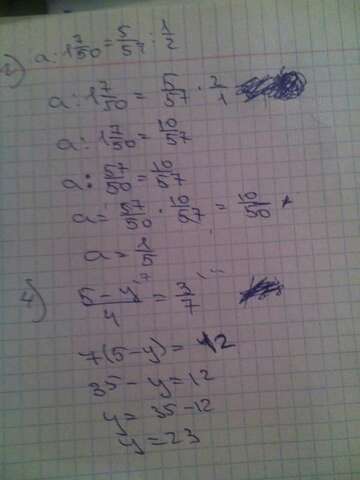 2) a : 1 7/50 = 5/57 : 1/2
a : 1 7/50 = 5/57 · 2/1
a : 1 7/50 = 10/57
a : 57/50 = 10/57
a = 57/50 · 10/57 = 10/50
a = 1/5
4) (5 - y)/4 = 3/7
7(5-y) = 12
35 - y = 12
y = 35-12
y = 23